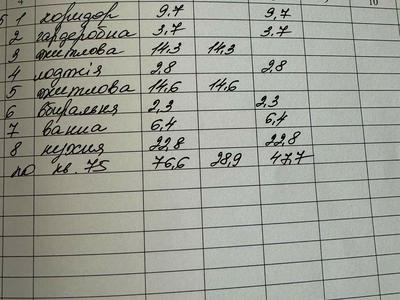 5 1 коридор 9,7 9,7
2 гардеробна 3,7 3,7
3 житлова 14,3 14,3
4 лоджія 2,8 2,8
5 житлова 14,6 14,6
6 вбиральня 2,3 2,3
7 ванна 6,4 6,4
8 кухня 22,8 22,8
по кв. 75 76,6 28,9 47,7